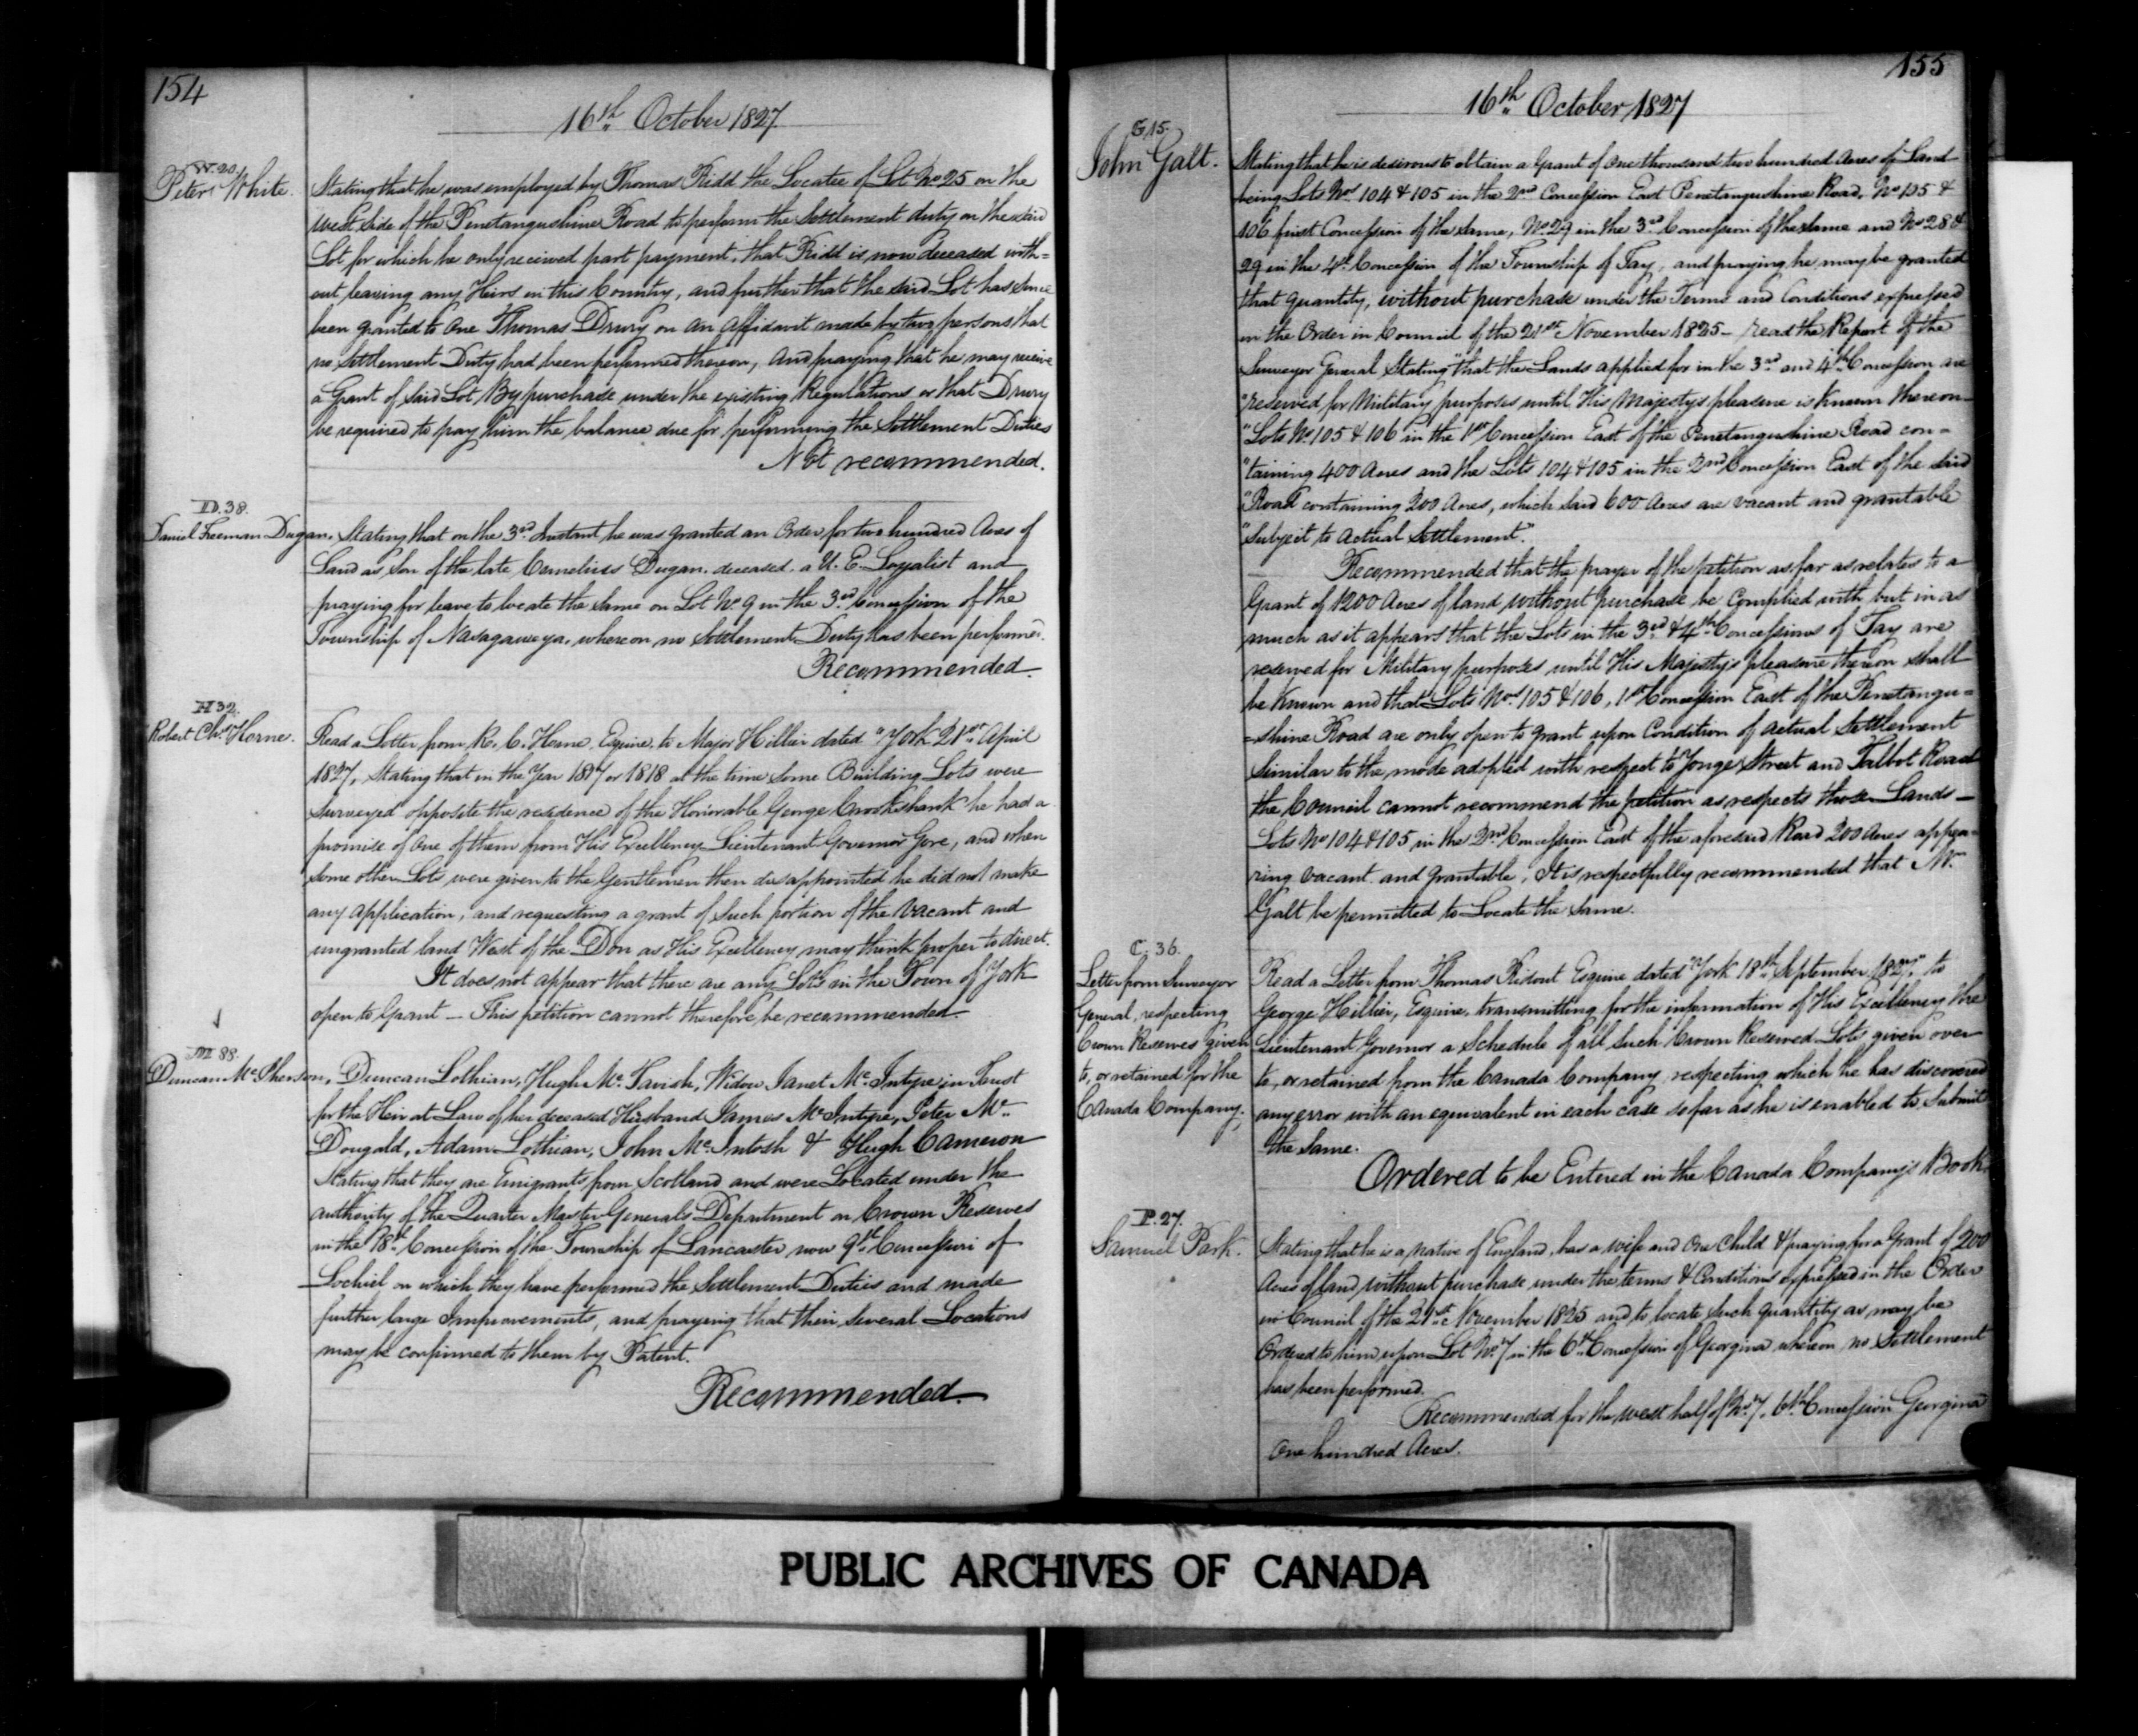 154
16th October 1827.
W. 20.
Peter White.
Stating that he was employed by Thomas Kidd the Locatee of Lot No 25 on the
West side of the Penetangushine Road to perform the Settlement duty on the said
Lot for which he only received part payment, that Kidd is now deceased with=
out leaving any Heirs in this Country, and further that the said Lot has since
been granted to One Thomas Drury on an Affidavit made by two persons that
no Settlement Duty had been performed thereon, And praying that he may receive
a Grant of said Lot By purchase under the existing Regulations or that Drury
be required to pay him the balance due for performing the Settlement Duties
Not recommended.
D. 38.
Daniel Freeman Dugan. Stating that on the 3rd Instant he was granted an Order for two hundred Acres of
Land as Son of the late Cornelius Dugan deceased a U. E. Loyalist and
praying for leave to locate the same on Lot No. 9 in the 3rd Concession of the
Township of Nasagaweya, whereon no Settlement Duty has been performed.
Recommended.
H 32.
Robert Chs Horne.
Read a Letter from R. C. Horne, Esquire, to Major Hillier dated "York 21st April
1827, Stating that in the Year 1817 or 1818 at the time some Building Lots were
surveyed opposite the residence of the Honorable George Crookshank he had a
promise of One of them from His Excellency Lieutenant Governor Gore, and when
some other Lots were given to the Gentlemen then disappointed he did not make
any application, and requesting a grant of such portion of the Vacant and
ungranted land West of the Don as His Excellency may think proper to direct.
It does not appear that there are any Lots in the Town of York
open to Grant — This petition cannot therefore be recommended.
M 88.
Duncan McPherson, Duncan Lothian, Hugh McTavish, Widow Janet McIntyre in Trust
for the Heir at Law of her deceased Husband James McIntyre, Peter Mc
Dougald, Adam Lothian, John McIntosh & Hugh Cameron
Stating that they are Emigrants from Scotland and were Located under the
authority of the Quarter Master Generals Department on Crown Reserves
in the 18th Concession of the Township of Lancaster now 9th Concession of
Lochiel on which they have performed the Settlement Duties and made
further large Improvements, and praying that their several Locations
may be confirmed to them by Patent.
Recommended.
155
16th October 1827
G 15.
John Galt.
Stating that he is desirous to obtain a Grant of One thousand two hundred Acres of Land
being Lots Nos 104 & 105 in the 2nd Concession East Penetangushine Road, No 105 &
106 first Concession of the same, No 29 in the 3rd Concession of the same and No 28 &
29 in the 4th Concession of the Township of Tay, and praying he may be granted
that quantity, without purchase under the Terms and Conditions expressed
in the Order in Council of the 21st November 1825 — read the Report of the
Surveyor General Stating "that the Lands applied for in the 3rd and 4th Concession are
"reserved for Military purposes until His Majesty's pleasure is known thereon —
"Lots No. 105 & 106 in the 1st Concession East of the Penetangushine Road con =
"taining 400 Acres and the Lots 104 & 105 in the 2nd Concession East of the said
"Road containing 200 Acres, which said 600 Acres are vacant and grantable
"Subject to Actual Settlement".
Recommended that the prayer of the petition as far as relates to a
Grant of 1200 Acres of land without purchase be Complied with but in as
much as it appears that the Lots in the 3rd & 4th Concessions of Tay are
reserved for Military purposes until His Majesty's pleasure thereon shall
be known and that Lots Nos 105 & 106, 1st Concession East of the Penetangu=
=shine Road are only open to grant upon Condition of actual Settlement
Similar to the mode adopted with respect to Yonge Street and Talbot Road
the Council cannot recommend the petition as respects those Lands —
Lots No 104 & 105 in the 2nd Concession East of the aforesaid Road 200 Acres appea=
ring vacant and grantable, It is respectfully recommended that Mr.
Galt be permitted to Locate the same.
C. 36.
Letter from Surveyor
General, respecting
Crown Reserves given
to, or retained for the
Canada Company.
Read a Letter from Thomas Ridout Esquire dated "York 18th September 1827," to
George Hillier, Esquire, transmitting for the information of His Excellency the
Lieutenant Governor a Schedule of all such Crown Reserved Lots given over
to, or retained from the Canada Company, respecting which he has discovered
any error with an equivalent in each case so far as he is enabled to Submit
the same.
Ordered to be Entered in the Canada Company's Book
P. 27.
Samuel Park.
Stating that he is a native of England, has a wife and One Child & praying for a Grant of 200
Acres of land without purchase under the terms & Conditions expressed in the Order
in Council of the 21st November 1825 and to locate such quantity as may be
Ordered to him upon Lot No. 7 in the 6th Concession of Georgina whereon no Settlement
has been performed.
Recommended for the west half of No. 7, 6th Concession Georgina
One hundred Acres.
PUBLIC ARCHIVES OF CANADA